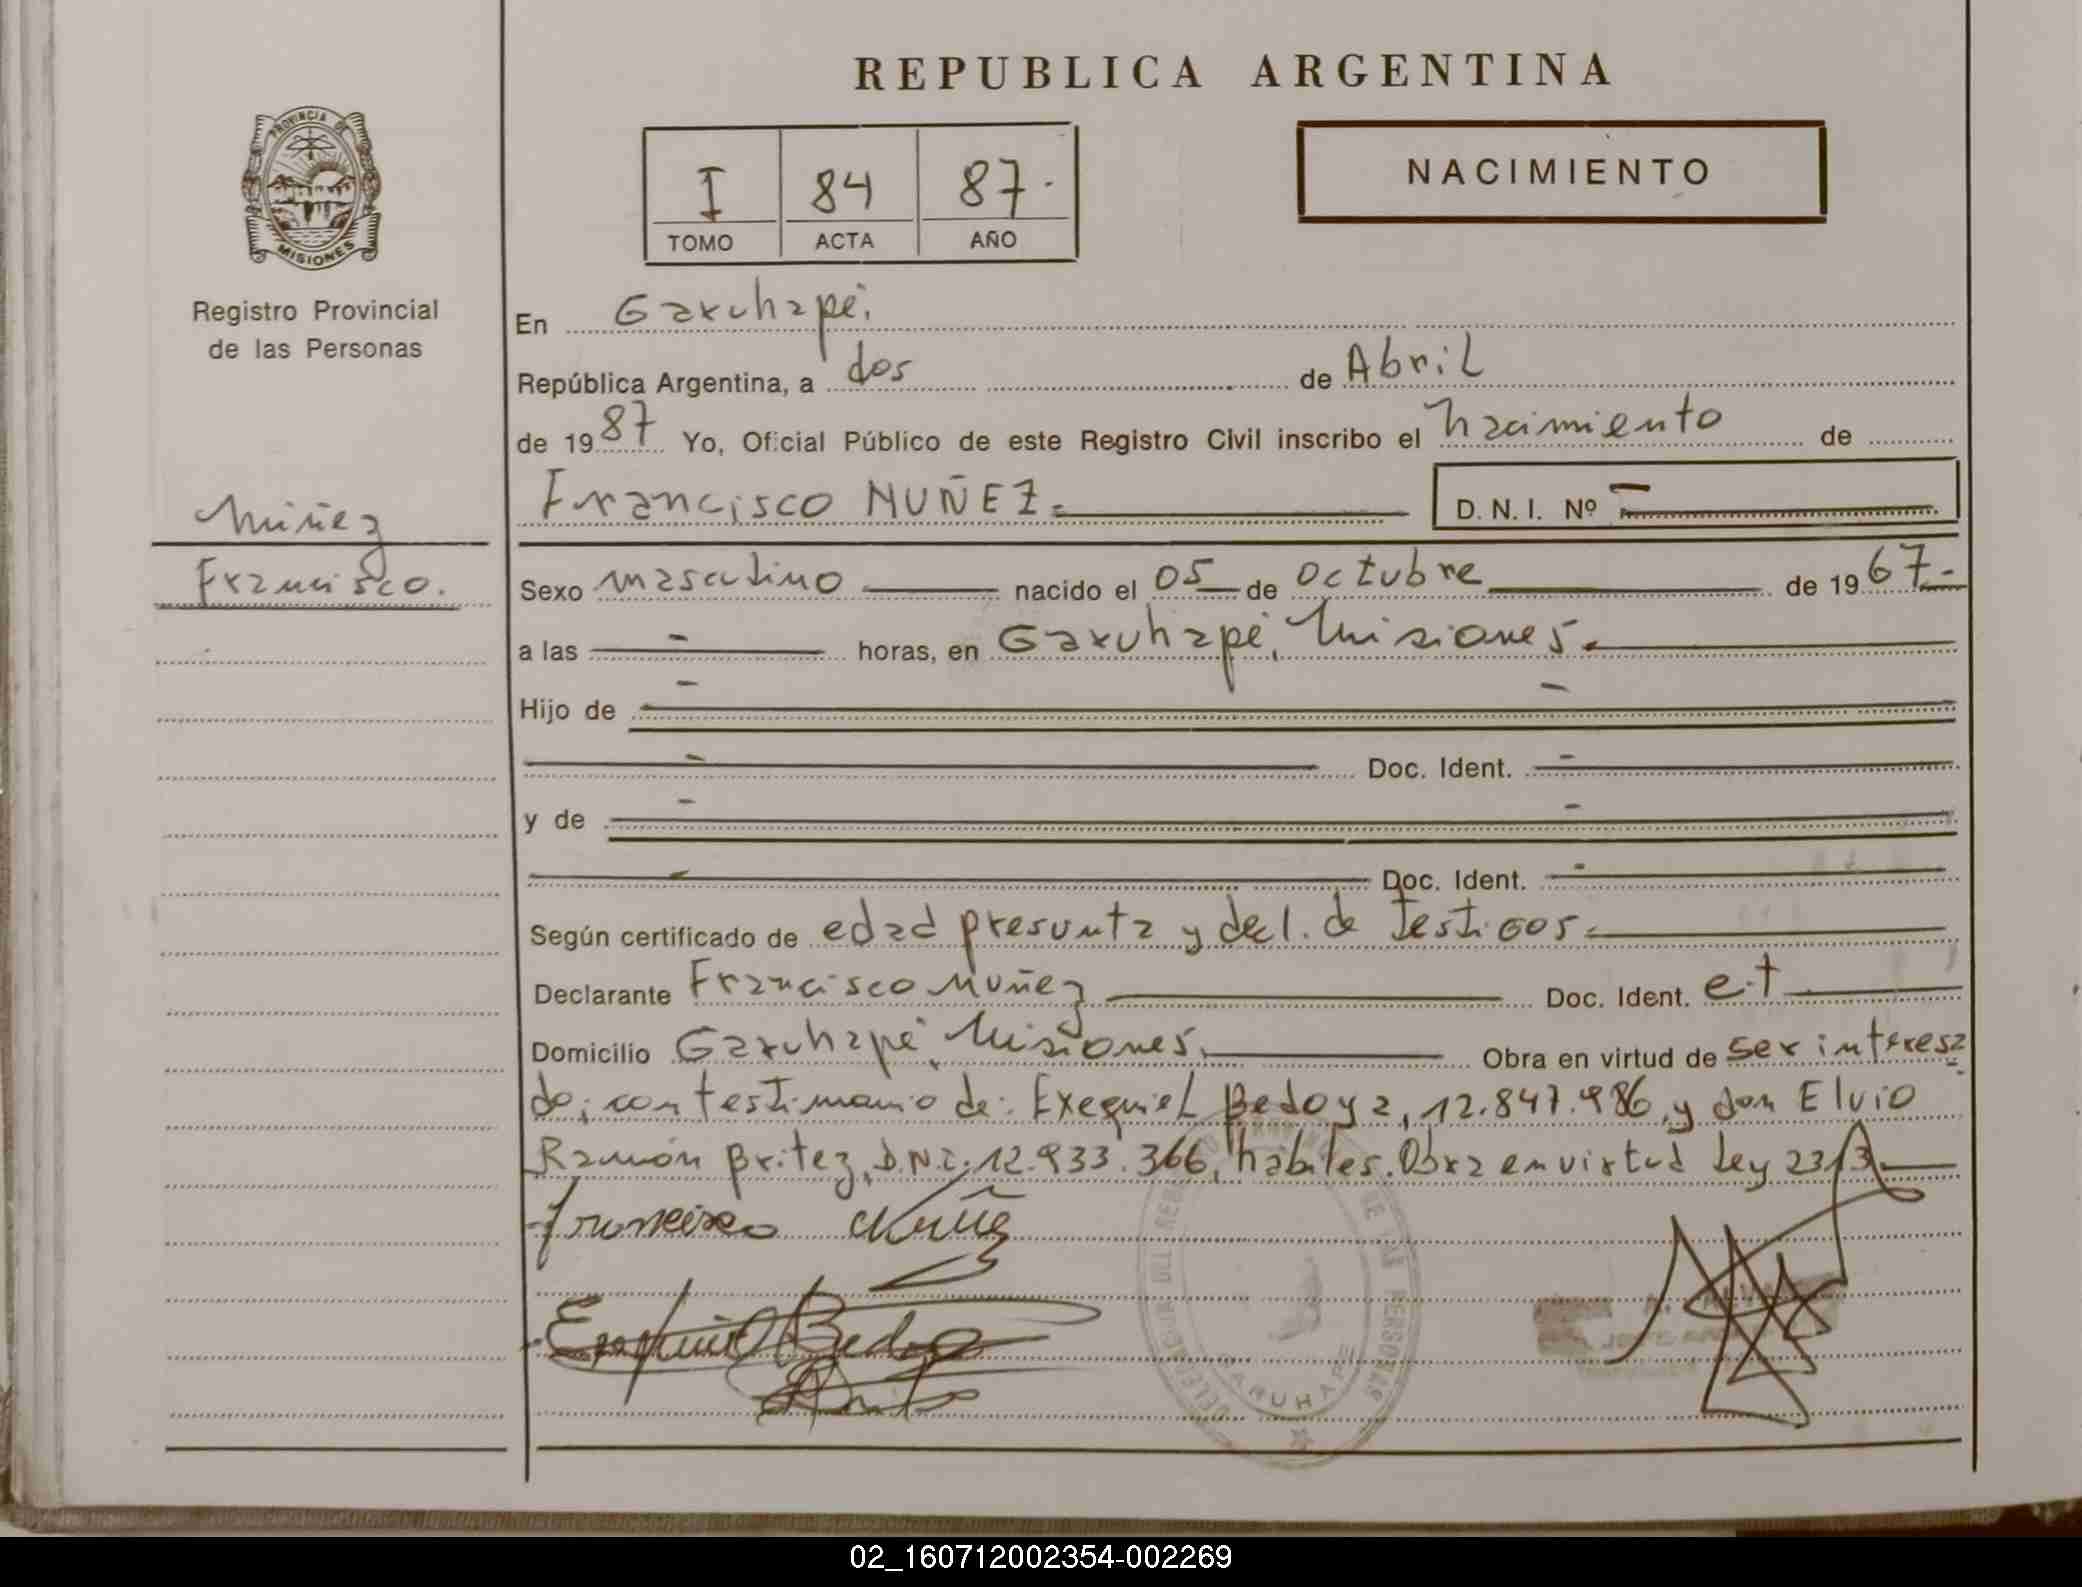 REPUBLICA ARGENTINA
PROVINCIA DE
MISIONES
Registro Provincial
de las Personas
I 84 87.
TOMO ACTA AÑO
NACIMIENTO
En Garuhapé.
República Argentina, a dos de Abril
de 1987 Yo, Oficial Público de este Registro Civil inscribo el nacimiento de
Francisco NUÑEZ.
D. N. I. Nº —
Núñez
Francisco.
Sexo masculino nacido el 05 de octubre de 1967.-
a las - horas, en Garuhapé, Misiones.
Hijo de - -
- Doc. Ident. -
y de - -
- Doc. Ident. -
Según certificado de edad presunta y decl. de Testigos.
Declarante Francisco Nuñez Doc. Ident. e.t
Domicilio Garuhapé, Misiones. Obra en virtud de ser interesa
do; con testimonio de: Exequiel Bedoya, 12.847.986, y don Elvio
Ramón Britez, D.N.I. 12.933.366, hábiles. Obra en virtud Ley
Francisco Nuñez
Exequiel Bedoya
DE LAS PERSONAS
GARUHAPE
02_160712002354-002269